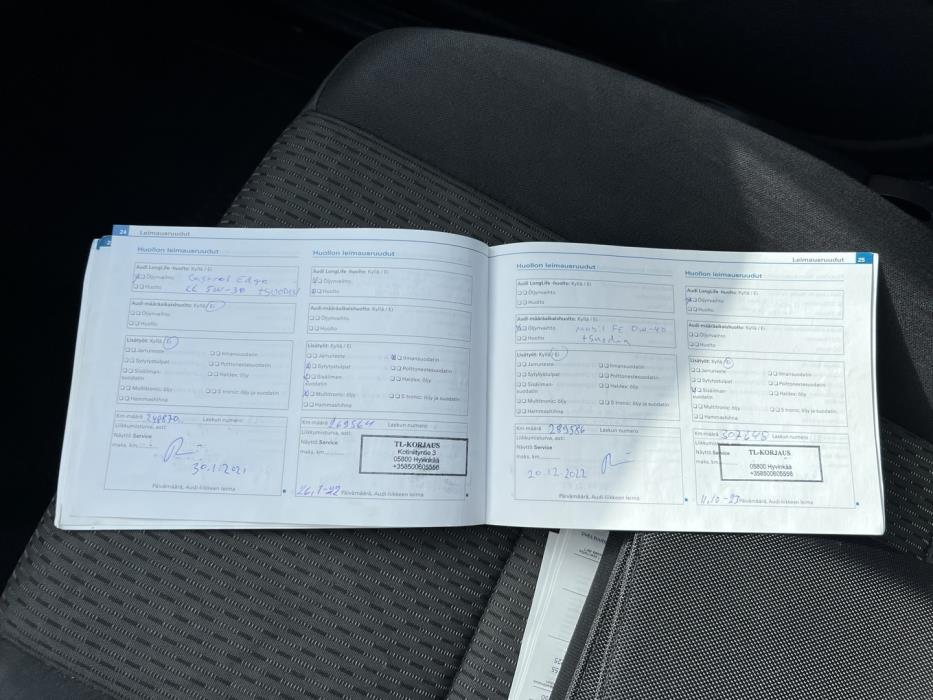 24 Leimausruudut
Huollon leimausruudut
Audi LongLife -huolto: Kyllä / Ei
Öljynvaihto Castrol Edge
Huolto LL 5W-30 +suodin
Audi-määräaikaishuolto: Kyllä / Ei
Öljynvaihto
Huolto
Lisätyöt: Kyllä / Ei
Jarruneste
Ilmansuodatin
Sytytystulpat
Polttonestesuodatin
Sisäilman-
suodatin
Haldex: öljy
Multitronic: öljy
S tronic: öljy ja suodatin
Hammashihna
Km-määrä 248870 Laskun numero
Liikkumisturva, asti:
Näyttö Service
maks. km
30.1.2021
Päivämäärä, Audi-liikkeen leima
Huollon leimausruudut
Audi LongLife -huolto: Kyllä / Ei
Öljynvaihto
Huolto
Audi-määräaikaishuolto: Kyllä / Ei
Öljynvaihto
Huolto
Lisätyöt: Kyllä / Ei
Jarruneste
Ilmansuodatin
Sytytystulpat
Polttonestesuodatin
Sisäilman-
suodatin
Haldex: öljy
Multitronic: öljy
S tronic: öljy ja suodatin
Hammashihna
Km-määrä 269564 Laskun numero
Liikkumisturva, asti:
Näyttö Service
maks. km
TL-KORJAUS
Kotiniityntie 3
05800 Hyvinkää
+358500605556
Päivämäärä, Audi-liikkeen leima
Leimausruudut 25
Huollon leimausruudut
Audi LongLife -huolto: Kyllä / Ei
Öljynvaihto
Huolto
Audi-määräaikaishuolto: Kyllä / Ei
Öljynvaihto Mobil FE 0w-40
Huolto +suodin
Lisätyöt: Kyllä / Ei
Jarruneste
Ilmansuodatin
Sytytystulpat
Polttonestesuodatin
Sisäilman-
suodatin
Haldex: öljy
Multitronic: öljy
S tronic: öljy ja suodatin
Hammashihna
Km-määrä 289586 Laskun numero
Liikkumisturva, asti:
Näyttö Service
maks. km
20.12.2022
Päivämäärä, Audi-liikkeen leima
Huollon leimausruudut
Audi LongLife -huolto: Kyllä / Ei
Öljynvaihto
Huolto
Audi-määräaikaishuolto: Kyllä / Ei
Öljynvaihto
Huolto
Lisätyöt: Kyllä / Ei
Jarruneste
Ilmansuodatin
Sytytystulpat
Polttonestesuodatin
Sisäilman-
suodatin
Haldex: öljy
Multitronic: öljy
S tronic: öljy ja suodatin
Hammashihna
Km-määrä 307648 Laskun numero
Liikkumisturva, asti:
Näyttö Service
maks. km
TL-KORJAUS
05800 Hyvinkää
+358500605556
11.10-23 Päivämäärä, Audi-liikkeen leima